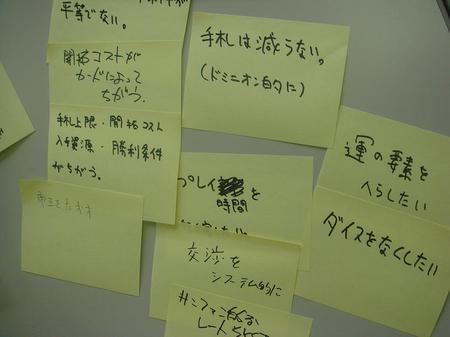 平等でない。
開拓コストが
カードによって
ちがう。
手札上限・開拓コスト
入手資源・勝利条件
がちがう。
手札は減らない。
(ドミニオン的に)
プレイ
時間
を
交渉を
システム的に
運の要素を
へらしたい
ダイスをなくしたい